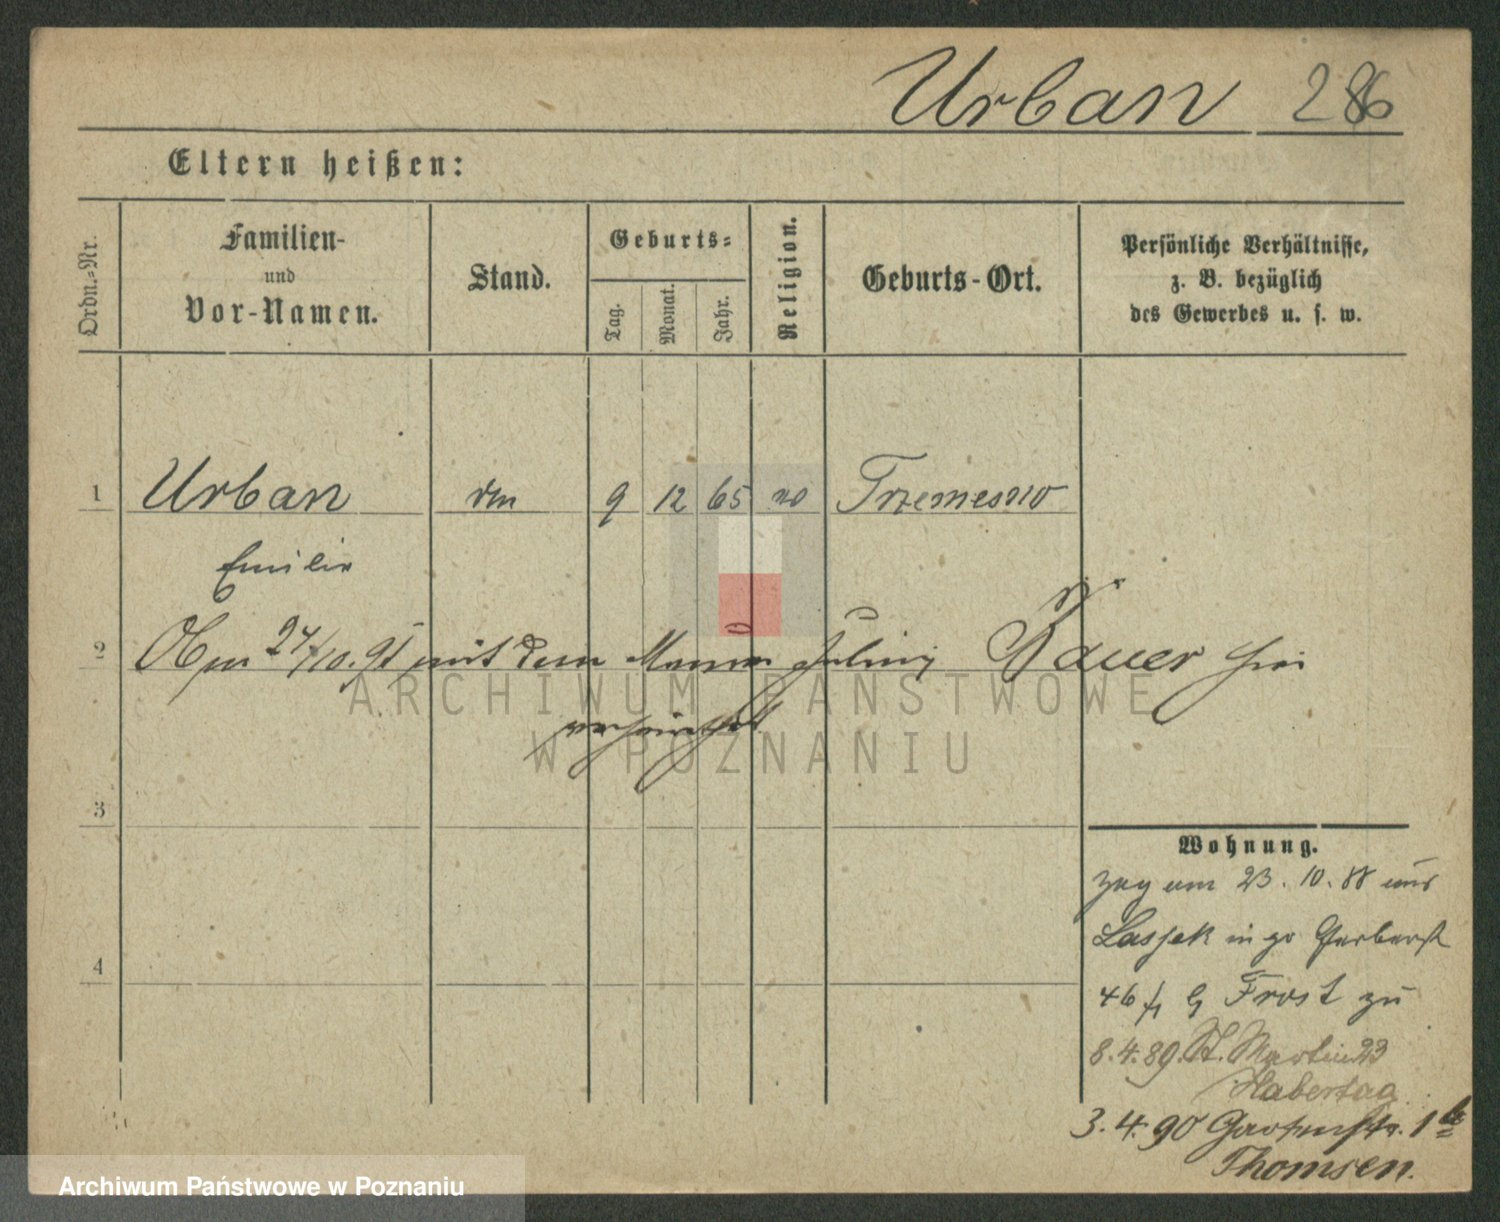 Urban 286
Eltern heißen:
Ordn.-Nr.
Familien-
und
Vor-Namen.
Stand.
Geburts-
Tag.
Monat.
Jahr.
Religion.
Geburts-Ort.
Persönliche Verhältnisse,
z. B. bezüglich
des Gewerbes u. s. w.
1 Urban 9 12 65 Trzemeszno
Emilie
2 am 27/10. 91 mit dem Maurer Julius Bauer hier
verheirathet
3
4
Wohnung.
zog am 23. 10. 88 aus
Lassek in gr Gerberst
46 Frost zu
8. 4. 89. St. Martin 23
Habertag
3. 4. 90 Gartenstr. 1b
Thomsen.
ARCHIWUM PAŃSTWOWE
W POZNANIU
Archiwum Państwowe w Poznaniu